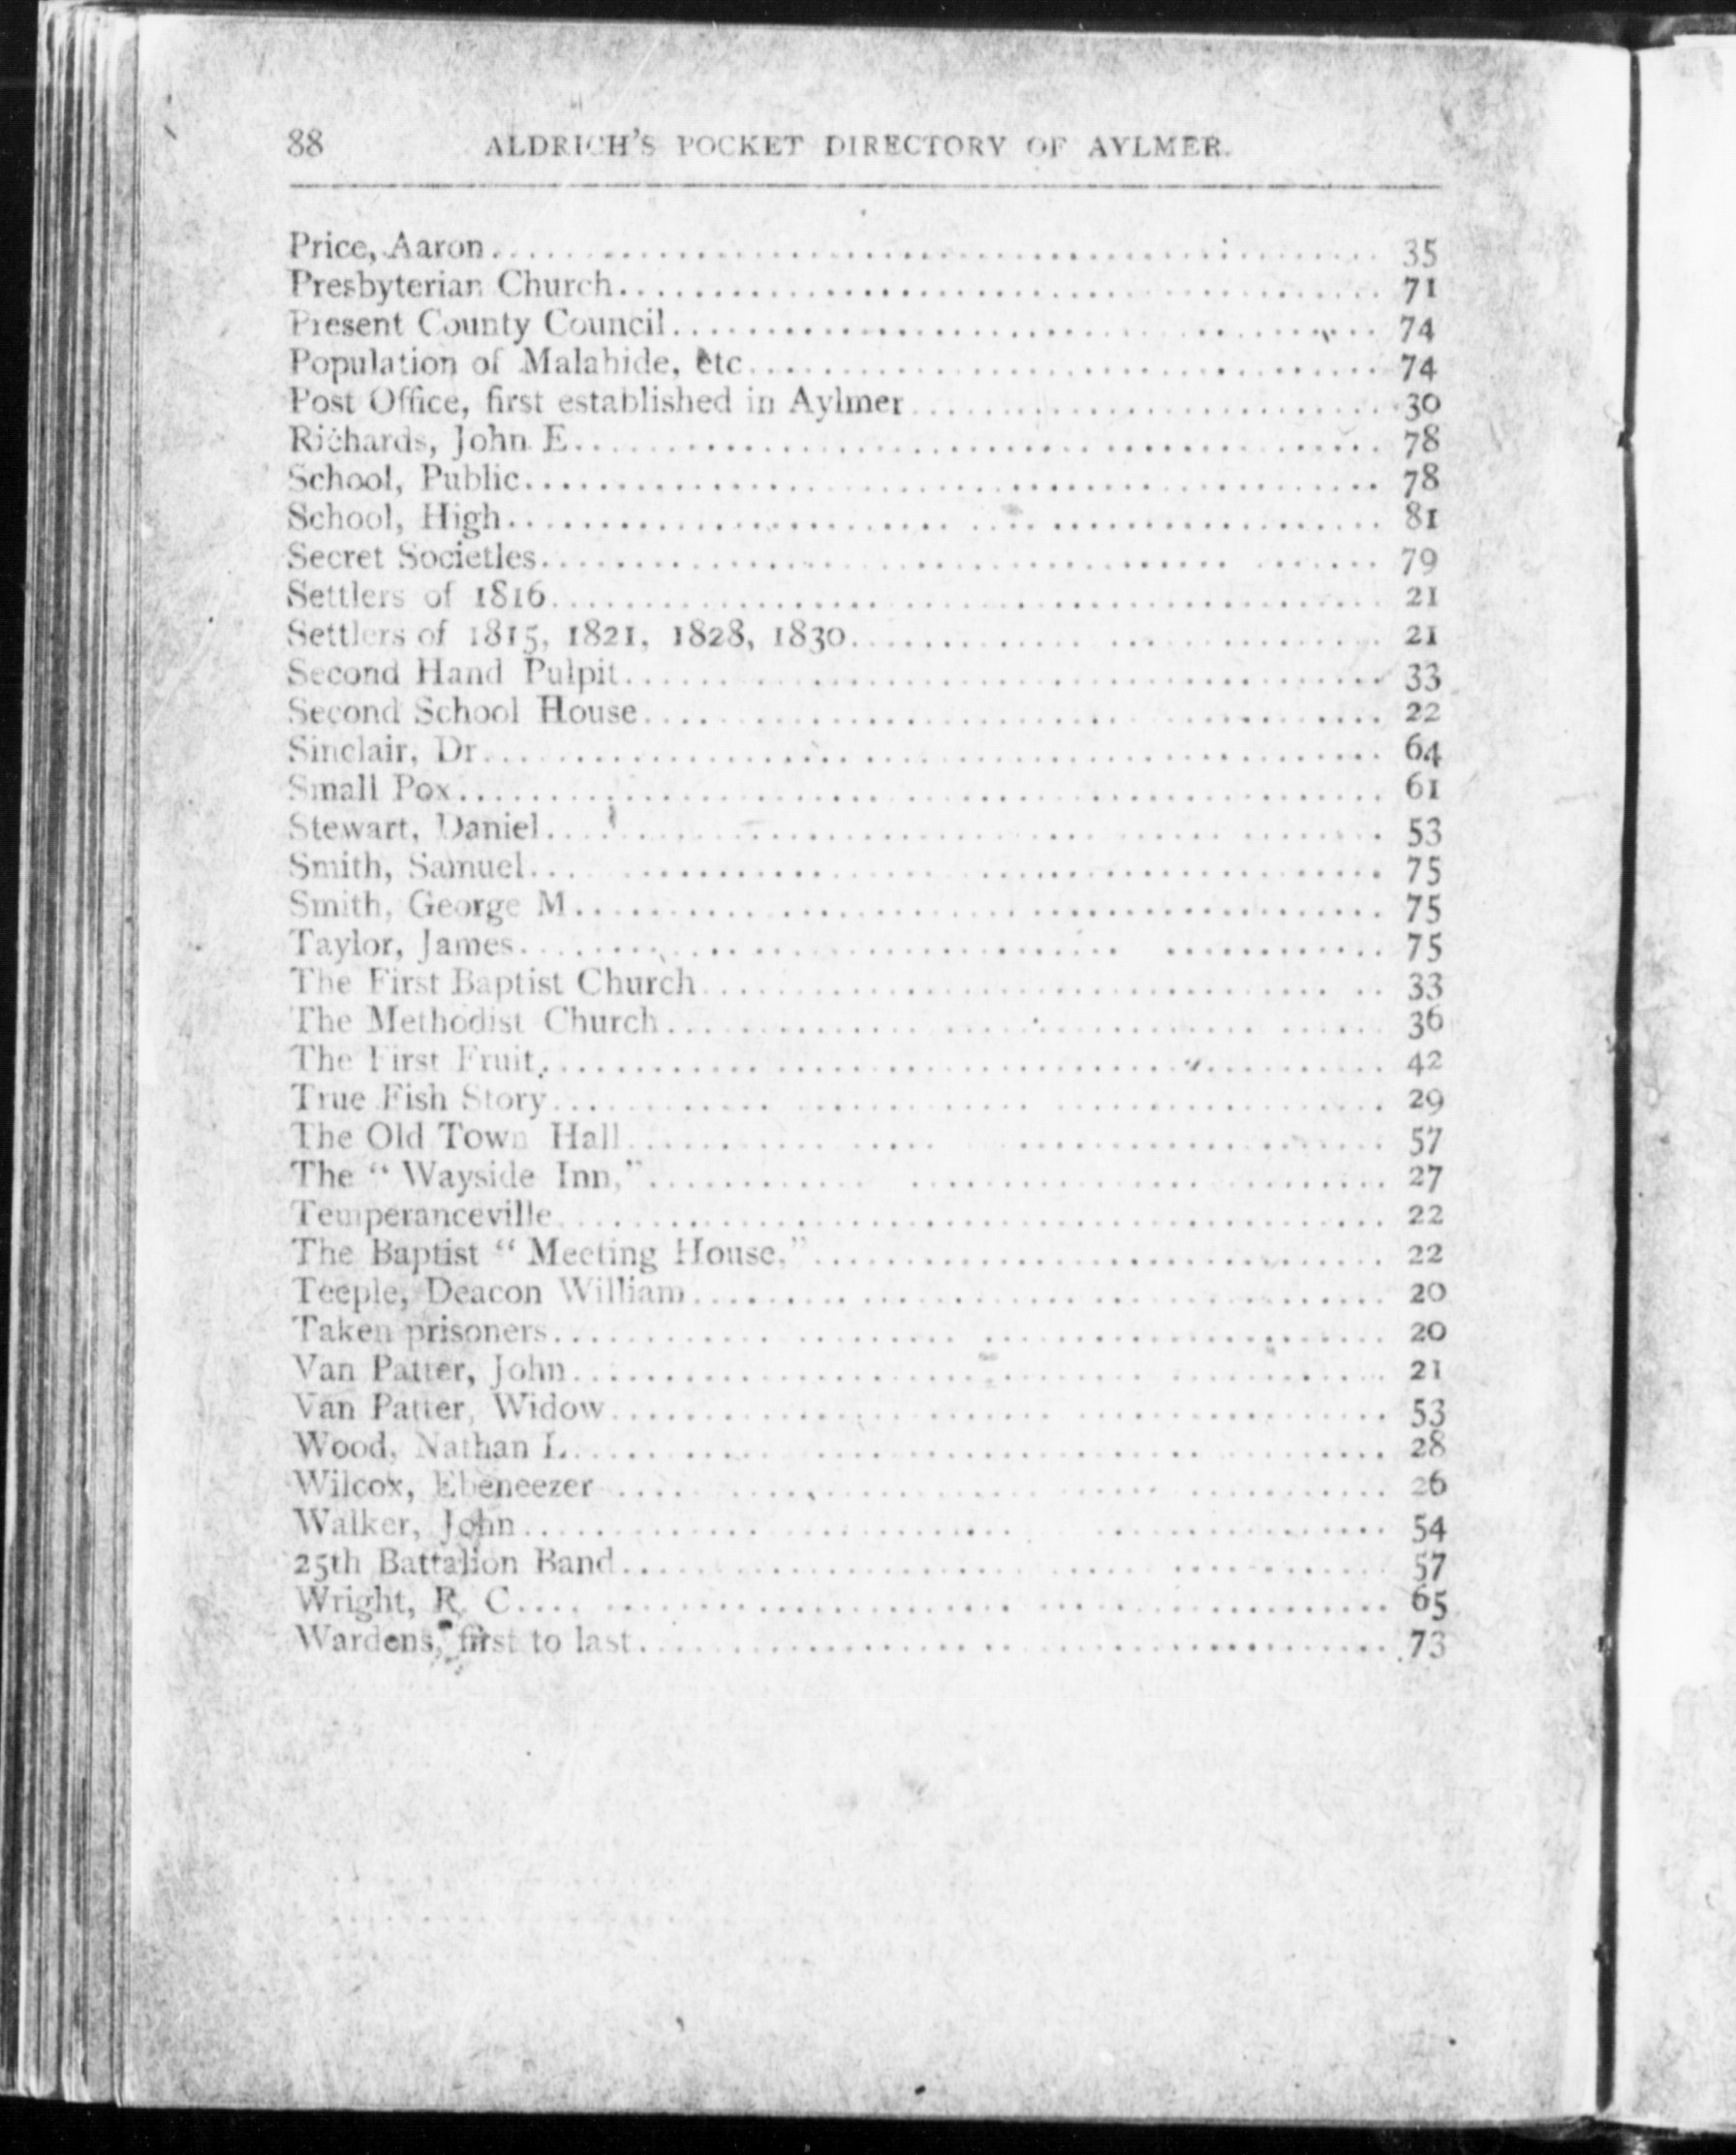 88 ALDRICH'S POCKET DIRECTORY OF AYLMER.
Price, Aaron.......... 35
Presbyterian Church.......... 71
Present County Council.......... 74
Population of Malahide, etc.......... 74
Post Office, first established in Aylmer.......... 30
Richards, John E.......... 78
School, Public.......... 78
School, High.......... 81
Secret Societies.......... 79
Settlers of 1816.......... 21
Settlers of 1815, 1821, 1828, 1830.......... 21
Second Hand Pulpit.......... 33
Second School House.......... 22
Sinclair, Dr.......... 64
Small Pox.......... 61
Stewart, Daniel.......... 53
Smith, Samuel.......... 75
Smith, George M.......... 75
Taylor, James.......... 75
The First Baptist Church.......... 33
The Methodist Church.......... 36
The First Fruit.......... 42
True Fish Story.......... 29
The Old Town Hall.......... 57
The “ Wayside Inn,”.......... 27
Temperanceville.......... 22
The Baptist “ Meeting House,”.......... 22
Teeple, Deacon William.......... 20
Taken prisoners.......... 20
Van Patter, John.......... 21
Van Patter, Widow.......... 53
Wood, Nathan L.......... 28
Wilcox, Ebeneezer.......... 26
Walker, John.......... 54
25th Battalion Band.......... 57
Wright, R. C.......... 65
Wardens, first to last.......... 73